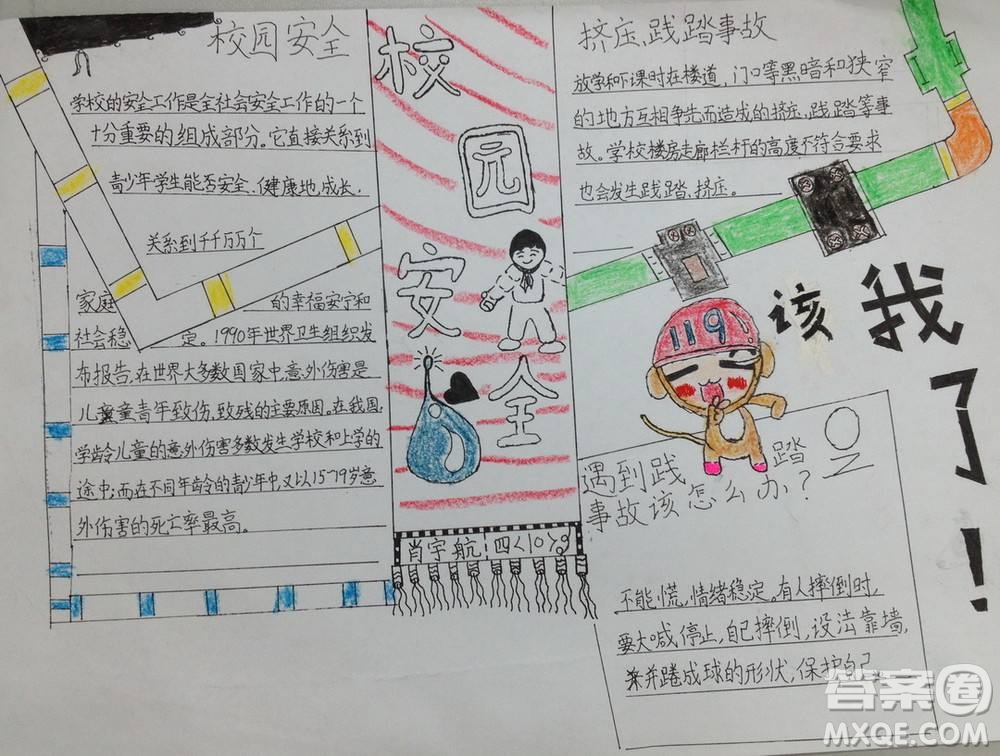 校园安全
学校的安全工作是全社会安全工作的一个
十分重要的组成部分。它直接关系到
青少年学生能否安全、健康地成长，
关系到千千万万个
家庭的幸福安宁和
社会稳定。1990年世界卫生组织发
布报告：在世界大多数国家中，意外伤害是
儿童青年致伤，致残的主要原因。在我国，
学龄儿童的意外伤害多数发生学校和上学的
途中；而在不同年龄的青少年中，又以1579岁意
外伤害的死亡率最高。
校
园
安
全
肖宇航：四〈10〉
挤压、践踏事故
放学和下课时在楼道，门口等黑暗和狭窄
的地方互相争先而造成的挤压、践踏等事
故。学校楼房走廊栏杆的高度不符合要求
也会发生践踏、挤压。
119！
该我了！
遇到践踏
事故该怎么办？
不能慌，情绪稳定。有人摔倒时，
要大喊停止，自己摔倒，设法靠墙，
并蜷成球的形状，保护自己。
答案圈
MXQE.COM